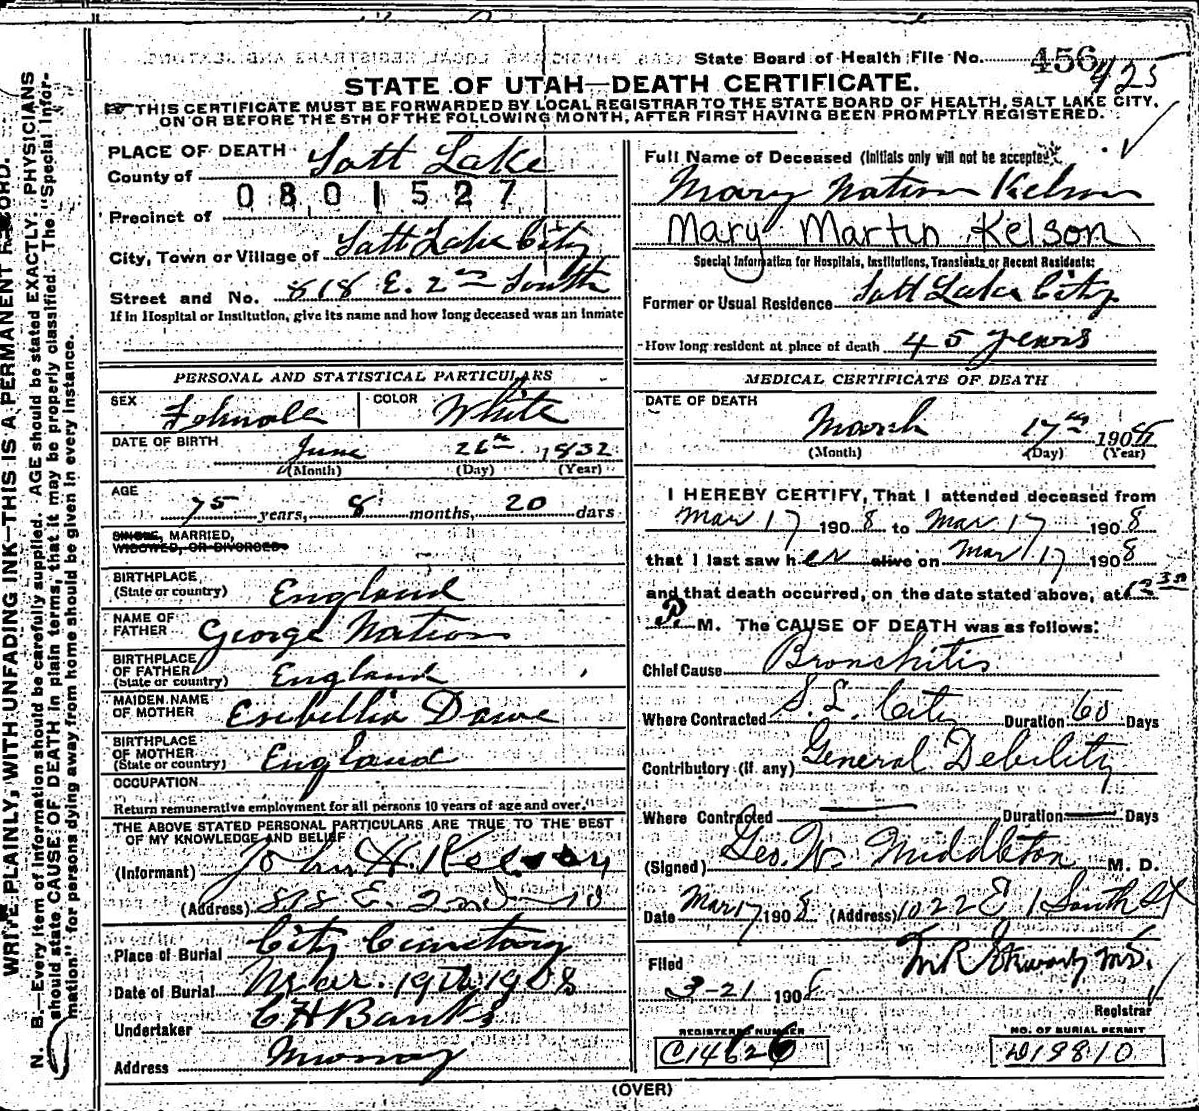 State Board of Health File No. 456
425
STATE OF UTAH—DEATH CERTIFICATE.
THIS CERTIFICATE MUST BE FORWARDED BY LOCAL REGISTRAR TO THE STATE BOARD OF HEALTH, SALT LAKE CITY,
ON OR BEFORE THE 5TH OF THE FOLLOWING MONTH, AFTER FIRST HAVING BEEN PROMPTLY REGISTERED.
PLACE OF DEATH
County of Salt Lake
0801527
Precinct of
City, Town or Village of Salt Lake City
Street and No. 818 E. 2nd South
If in Hospital or Institution, give its name and how long deceased was an inmate
Full Name of Deceased (Initials only will not be accepted)
Mary Nation Kelson
Mary Martin Kelson
Special Information for Hospitals, Institutions, Transients or Recent Residents:
Former or Usual Residence Salt Lake City
How long resident at place of death 45 years
PERSONAL AND STATISTICAL PARTICULARS
SEX Fehmale COLOR White
DATE OF BIRTH June 26th 1832
(Month) (Day) (Year)
AGE
75 years, 8 months, 20 days
SINGLE, MARRIED,
WIDOWED, OR DIVORCED
BIRTHPLACE
(State or country) England
NAME OF
FATHER George Nation
BIRTHPLACE
OF FATHER
(State or country) England
MAIDEN NAME
OF MOTHER Esebellia Dawe
BIRTHPLACE
OF MOTHER
(State or country) England
OCCUPATION
Return remunerative employment for all persons 10 years of age and over.
THE ABOVE STATED PERSONAL PARTICULARS ARE TRUE TO THE BEST
OF MY KNOWLEDGE AND BELIEF
(Informant) John H.
(Address) 818 E. 2nd So
Place of Burial City Cemetary
Date of Burial Mar. 19th 1908
Undertaker C H Banks
Address Murray
MEDICAL CERTIFICATE OF DEATH
DATE OF DEATH
March 17th 1908
(Month) (Day) (Year)
I HEREBY CERTIFY, That I attended deceased from
Mar 17 1908 to Mar 17 1908
that I last saw her alive on Mar 17 1908
and that death occurred, on the date stated above, at 12 30
P. M. The CAUSE OF DEATH was as follows:
Chief Cause Bronchitis
Where Contracted S. L. City Duration 60 Days
Contributory (if any) General Debility
Where Contracted Duration Days
(Signed) Geo. W. Middleton M. D.
Date Mar 17 1908 (Address) 1022 E 1 South St
Filed
3-21 1908
Registrar
REGISTERED NUMBER
C14626
NO. OF BURIAL PERMIT
D19810
(OVER)
WRITE PLAINLY, WITH UNFADING INK—THIS IS A PERMANENT RECORD.
N. B.—Every item of information should be carefully supplied. AGE should be stated EXACTLY. PHYSICIANS
should state CAUSE OF DEATH in plain terms, that it may be properly classified. The "Special Infor-
mation" for persons dying away from home should be given in every instance.